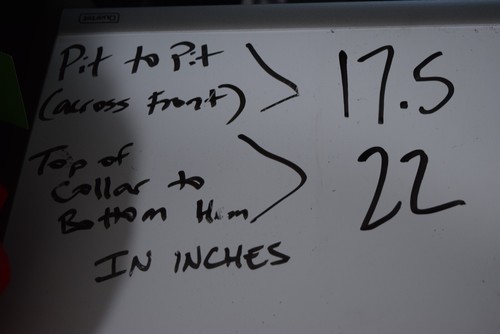 Pit to Pit > 17.5
(across front)
Top of
Collar to > 22
Bottom Hem
IN INCHES